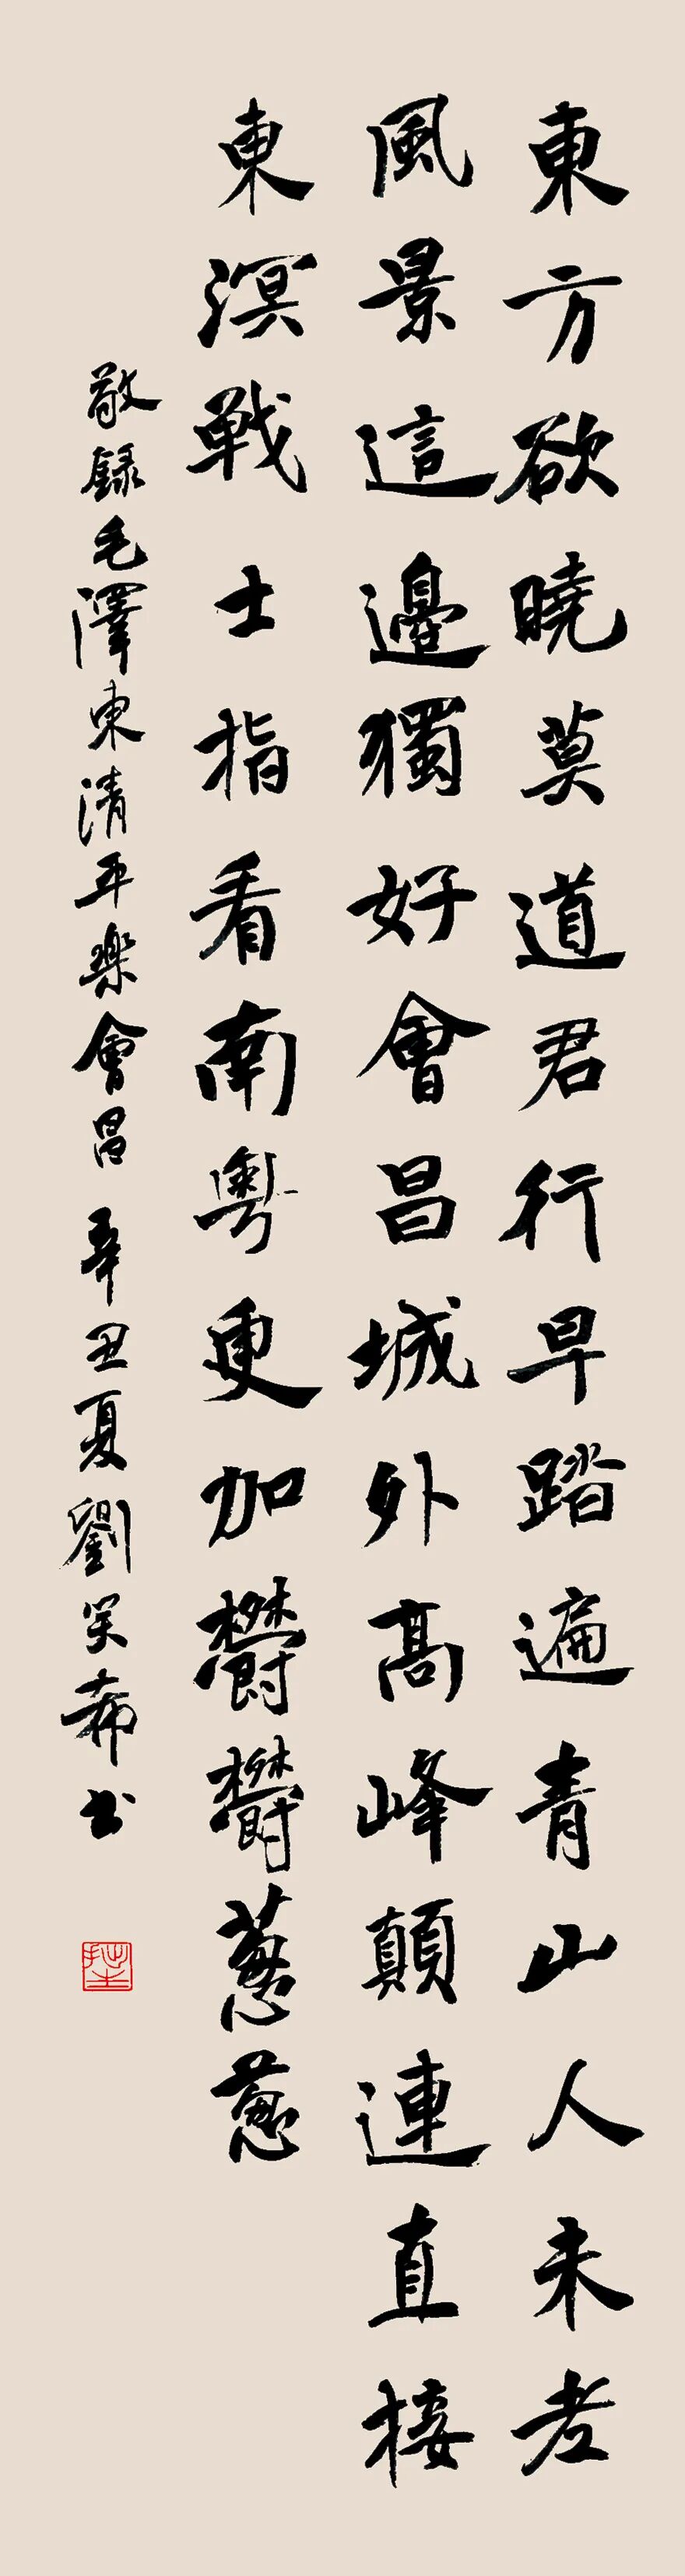 東方欲曉莫道君行早踏遍青山人未老
風景這邊獨好會昌城外髙峰顛連直接
東溟戦士指看南粤更加欝欝蔥蔥
敬録毛澤東清平樂會昌 辛丑夏劉笑希书